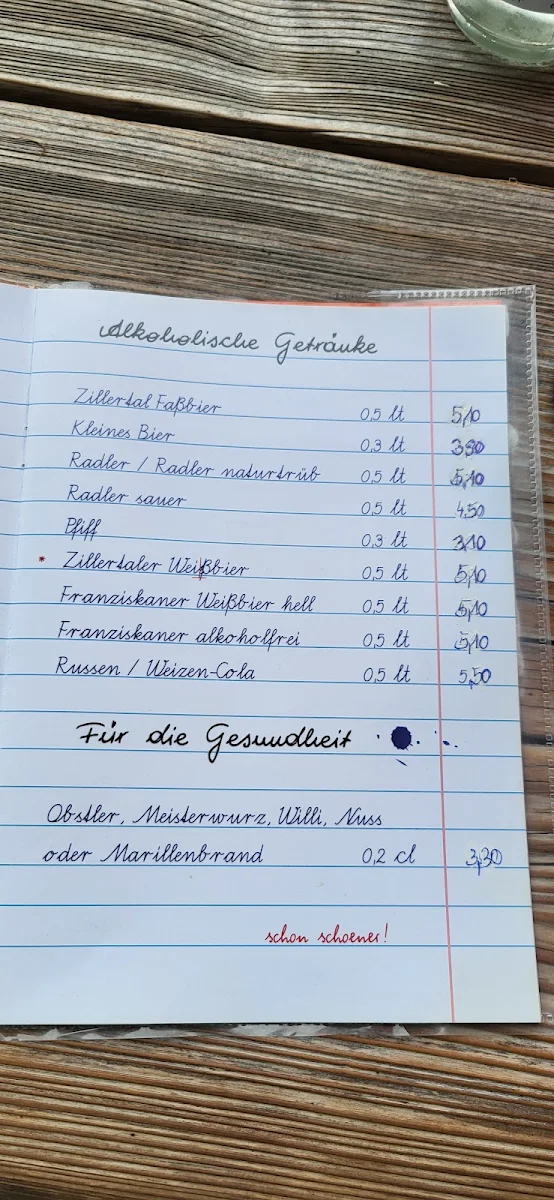 Alkoholische Getränke
Zillertal Faßbier 0,5 lt 5,10
Kleines Bier 0,3 lt 3,90
Radler / Radler naturtrüb 0,5 lt 5,10
Radler sauer 0,5 lt 4,50
Pfiff 0,3 lt 3,10
* Zillertaler Weißbier 0,5 lt 5,10
Franziskaner Weißbier hell 0,5 lt 5,10
Franziskaner alkoholfrei 0,5 lt 5,10
Russen / Weizen-Cola 0,5 lt 5,50
Für die Gesundheit
Obstler, Meisterwurz, Willi, Nuss
oder Marillenbrand 0,2 cl 3,30
schon schoener!